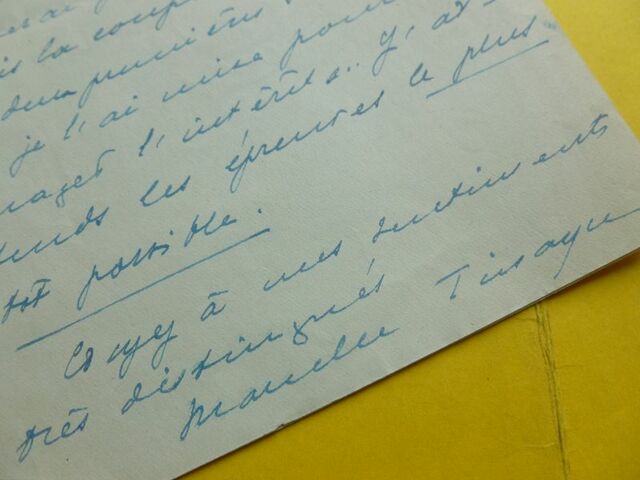 is la coup
deux premières
je l'ai mise pour
nager l'intérêt.. J'at-
tends les épreuves le plus
tôt possible.
Croyez à mes sentiments
très distingués
Marcelle Tinayre